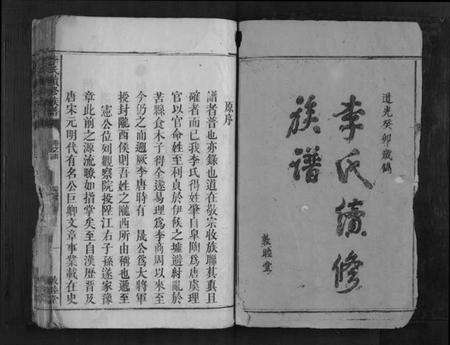 道光癸卯歲鐫
李氏續修
族譜
敦睦堂
原序
譜者普也亦錄也道在敬宗收族聯其眞且
確者而已我李氏得姓肇自皋陶爲虞理
官以官命姓至利貞於伊侯之墟避難於
苦縣食木子得全遂易理爲李商周以來至
今仍之而廻厥李唐時有 晟公爲大將軍
授封隴西侯則吾姓之隴西所由稱也遞至
憲公位列觀察院授陞江右子孫遂家豫
章此前之源流瞭如指掌矣至自漢歷晋及
唐宋元明代有名公巨卿文章事業載在史
敦睦堂